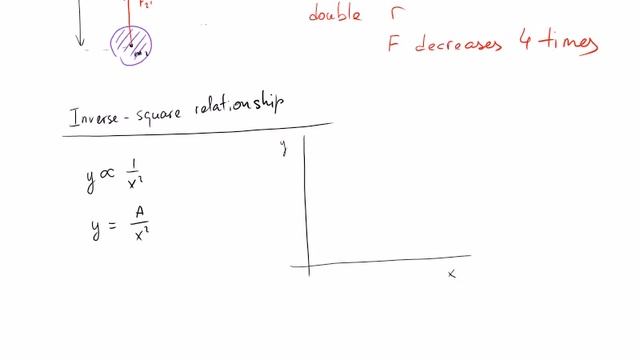 F₂₁
double r
m₂
F decreases 4 times
Inverse-square relationship
y
y ∝ 1/x²
y = A/x²
x